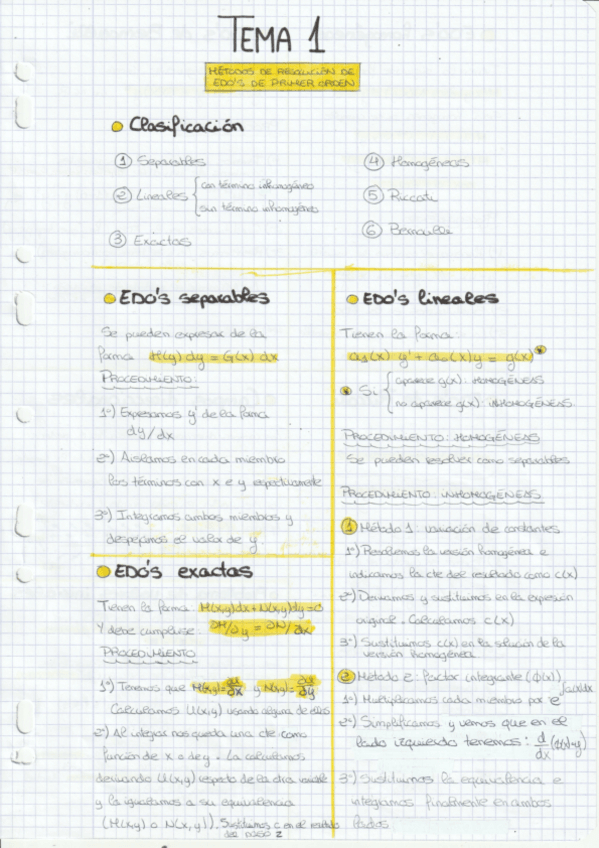 TEMA 1
MÉTODOS DE RESOLUCIÓN DE
EDO'S DE PRIMER ORDEN
Clasificación
① Separables
② Lineales { con término inhomogéneo
sin término inhomogéneo
③ Exactas
④ Homogéneas
⑤ Riccati
⑥ Bernoulli
EDO's separables
Se pueden expresar de la
forma H(y) dy = G(x) dx
PROCEDIMIENTO:
1º) Expresamos y' de la forma
dy/dx
2º) Aislamos en cada miembro
los términos con x e y respectivamente
3º) Integramos ambos miembros y
despejamos el valor de y.
EDO's exactas
Tienen la forma: M(x,y)dx + N(x,y)dy = 0
Y debe cumplirse: ∂M/∂y = ∂N/∂x
PROCEDIMIENTO
1º) Tenemos que M(x,y) = ∂u/∂x y N(x,y) = ∂u/∂y
Calculamos U(x,y) usando alguna de ellas
2º) Al integrar nos queda una cte como
función de x o de y. La calculamos
derivando U(x,y) respecto de la otra variable
y la igualamos a su equivalencia
(M(x,y) o N(x,y)). Sustituimos c en el resultado
del paso 2
EDO's lineales
Tienen la forma:
a₁(x) y' + a₀(x)y = g(x) *
* Si { aparece g(x): HOMOGÉNEAS
no aparece g(x): INHOMOGÉNEAS
PROCEDIMIENTO: HOMOGÉNEAS
Se pueden resolver como separables
PROCEDIMIENTO: INHOMOGÉNEAS
① Método 1: variación de constantes
1º) Resolvemos la versión homogénea e
indicamos la cte del resultado como c(x)
2º) Derivamos y sustituimos en la expresión
original. Calculamos c(x)
3º) Sustituimos c(x) en la solución de la
versión homogénea
② Método 2: factor integrante (ϕ(x))
1º) Multiplicamos cada miembro por e^∫a(x)dx
2º) Simplificamos y vemos que en el
lado izquierdo tenemos: d/dx (ϕ(x)·y)
3º) Sustituimos la equivalencia e
integramos finalmente en ambos
lados